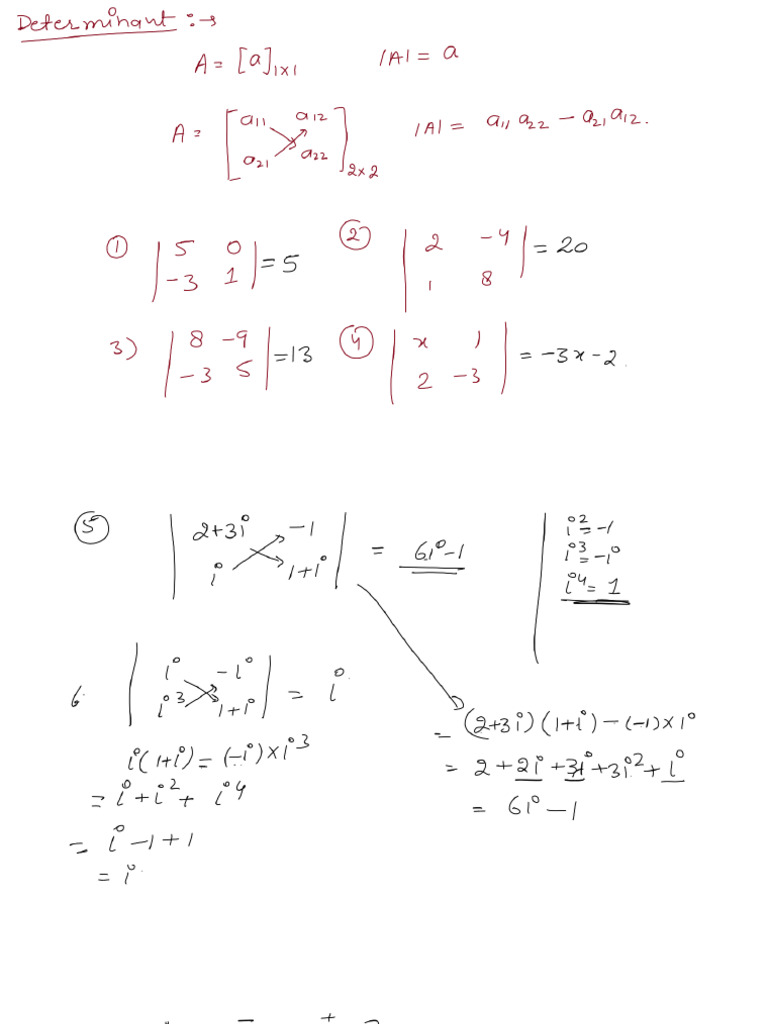 Determinant :→
A = [a]1×1 |A| = a
A = [a11 a12 a21 a22]2×2 |A| = a11 a22 − a21 a12.
① |5 0 −3 1| = 5 ② |2 −4 1 8| = 20
3) |8 −9 −3 5| = 13 ④ |x 1 2 −3| = −3x − 2.
⑤ |2+3i −1 i 1+i| = 6i−1
i² = −1
i³ = −i
i⁴ = 1
6. |i −i i³ 1+i| = i.
i(1+i) = (−i)×i³
= i + i² + i⁴
= i − 1 + 1
= i.
= (2+3i)(1+i) − (−1)×i
= 2 + 2i + 3i + 3i² + i
= 6i − 1